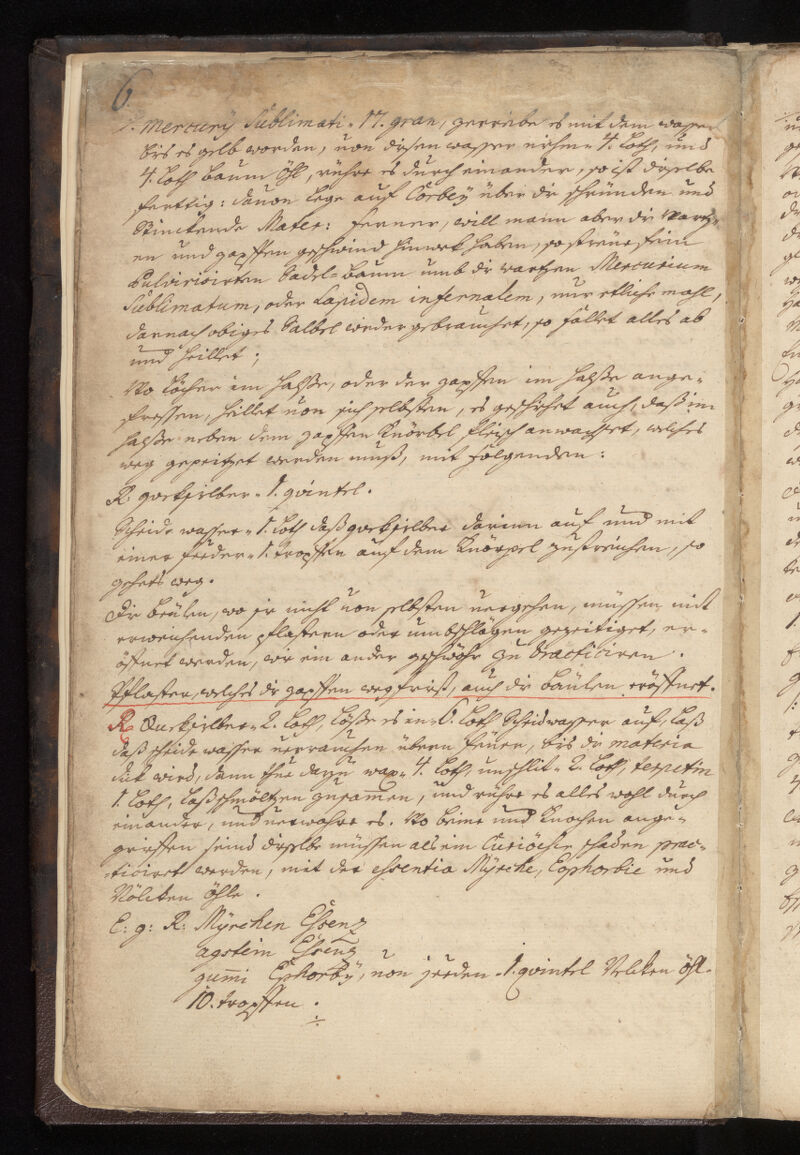 6.
Mercurÿ Sublimati. 17. gran, zerreibe es mit dem wasser
bis es gelb worden, von disen wasser nihm 4. Loth, und
4. Loth Baum Öhl, rühre es durch einander, so ist diselbe
ferttig: davon lege auf über die schründen und
Stinckende Mater: ferner, will mann aber die wartz-
en und zapffen geschwind hinwek haben, so streüe
Pulvirisirten Sadel-Baum umb die wartzen Mercurium
Sublimatum, oder Lapidem infernalem, nur etliche mahl,
darnach obiges Sälbel wieder gebrauchet, so fallet alles ab
und heillet;
Wo Löcher im Halse, oder der zapffen im Halse ange-
fressen, heillet von sich selbsten, es geschihet auch, daß im
Halse neben dem zapffen Knörbel fleisch anwachset, welches
weg gepeitzet werden muß, mit folgenden:
R. queksilber. 1. quintel.
Scheide wasser. 1. Loth daß queksilber darinn auf und mit
einer feeder. 1. tropffen auf dem Knörpel zustreichen, so
gehets weg.
Die beülen, wo sie nicht von selbsten vergehen, müssen mit
erweichenden pflastern oder umbschlägen gezeitiget, er-
öffnet werden, wie ein ander geschwöhr zu Practiciren.
Pflaster, welches die zapffen wegfrist, auch die beülen eröffnet.
R. Quecksilber. 2. Loth, Löße es in. 6. Loth Scheidwasser auf, laß
daß scheide wasser verrauchen übern feüer, bis die materia
dik wird, dann thue dazzu wax. 4. Loth, unschlit. 2. Loth, terpetin
1. Loth, laß schmöltzen zusam̅en, und rühre es alles wohl durch
einander, und verwahre es. Wo beine und Knochen ange-
griffen seind dieselbe müssen als ein schaden prac-
ticiret werden, mit der essentia Mÿrrhe, Euphorbie und
Nölcken Öhle.
E: g: R: Mÿrrhen Essenz
agstein Essenz
gum̅i Euphorbÿ, von jeeden. 1. quintel Nelcken Öhl.
10. tropffen.